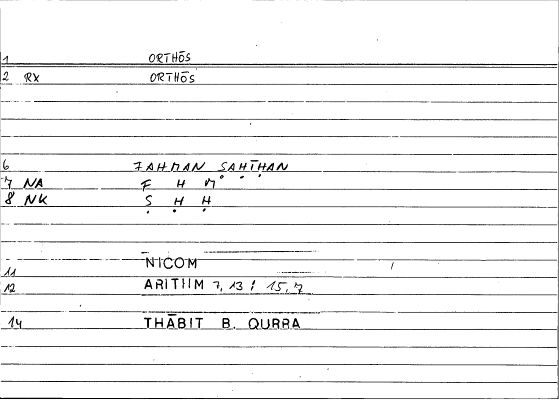 1 ORTHŌS
2 RX ORTHŌS
6 FAHMAN ṢAḤĪḤAN
7 NA F H M
8 NK Ṣ Ḥ Ḥ
11 NICOM
12 ARITHM 7, 13 ; 15, 7
14 THĀBIT B. QURRA